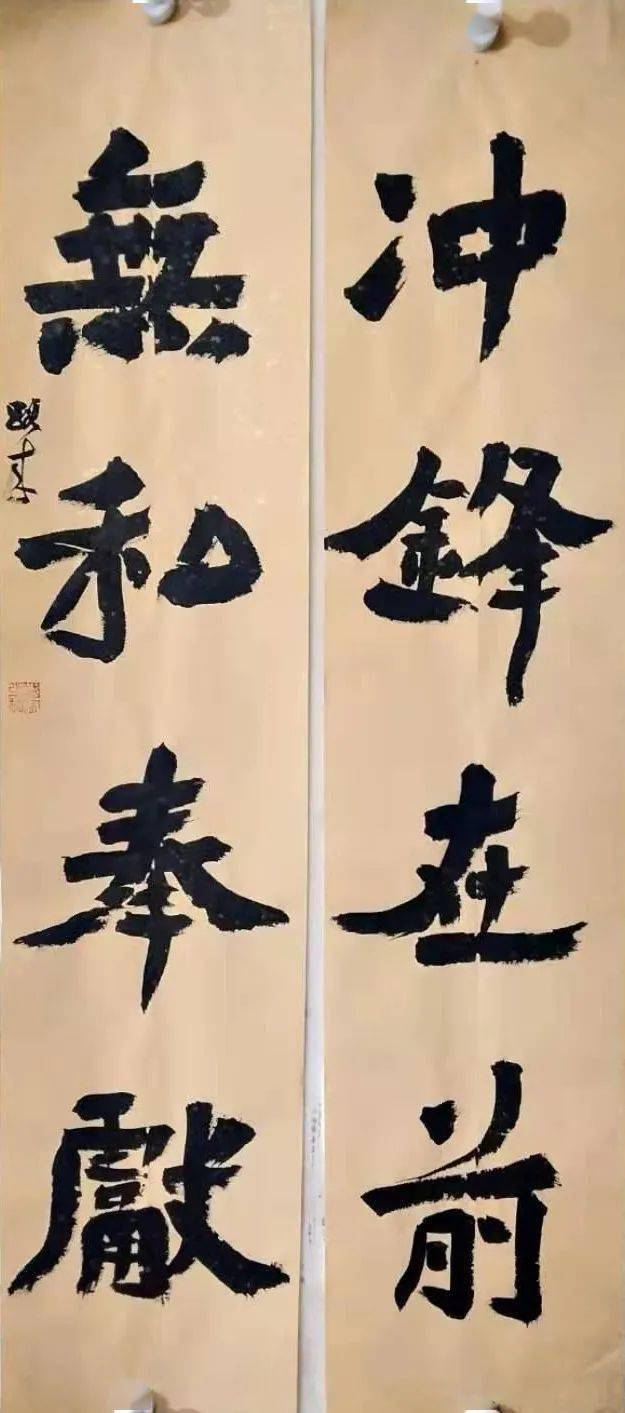 冲鋒在前
無私奉獻